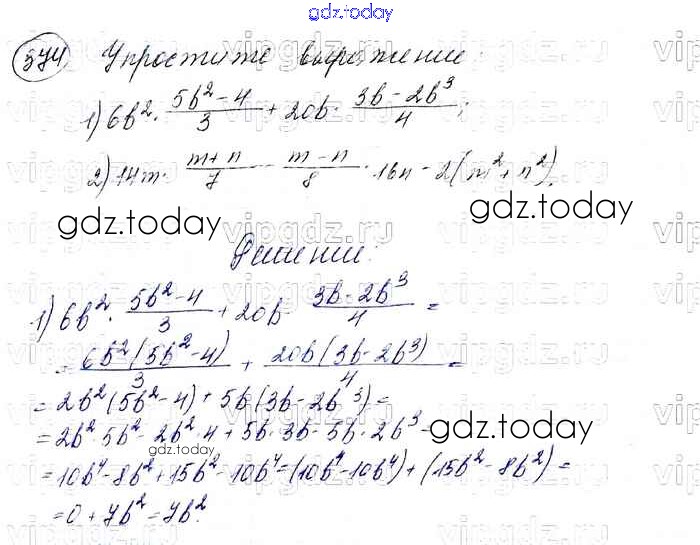 gdz.today
374 Упростите выражение:
1) 6b² · (5b² - 4)/3 + 20b · (3b - 2b³)/4;
2) 14m · (m + n)/7 - (m - n)/8 · 16n - 2(m² + n²).
gdz.today gdz.today
Решение:
1) 6b² · (5b² - 4)/3 + 20b · (3b - 2b³)/4 =
= 6b²(5b² - 4)/3 + 20b(3b - 2b³)/4 =
= 2b²(5b² - 4) + 5b(3b - 2b³) =
= 2b² · 5b² - 2b² · 4 + 5b · 3b - 5b · 2b³ =
gdz.today
gdz.today
= 10b⁴ - 8b² + 15b² - 10b⁴ = (10b⁴ - 10b⁴) + (15b² - 8b²) =
= 0 + 7b² = 7b².